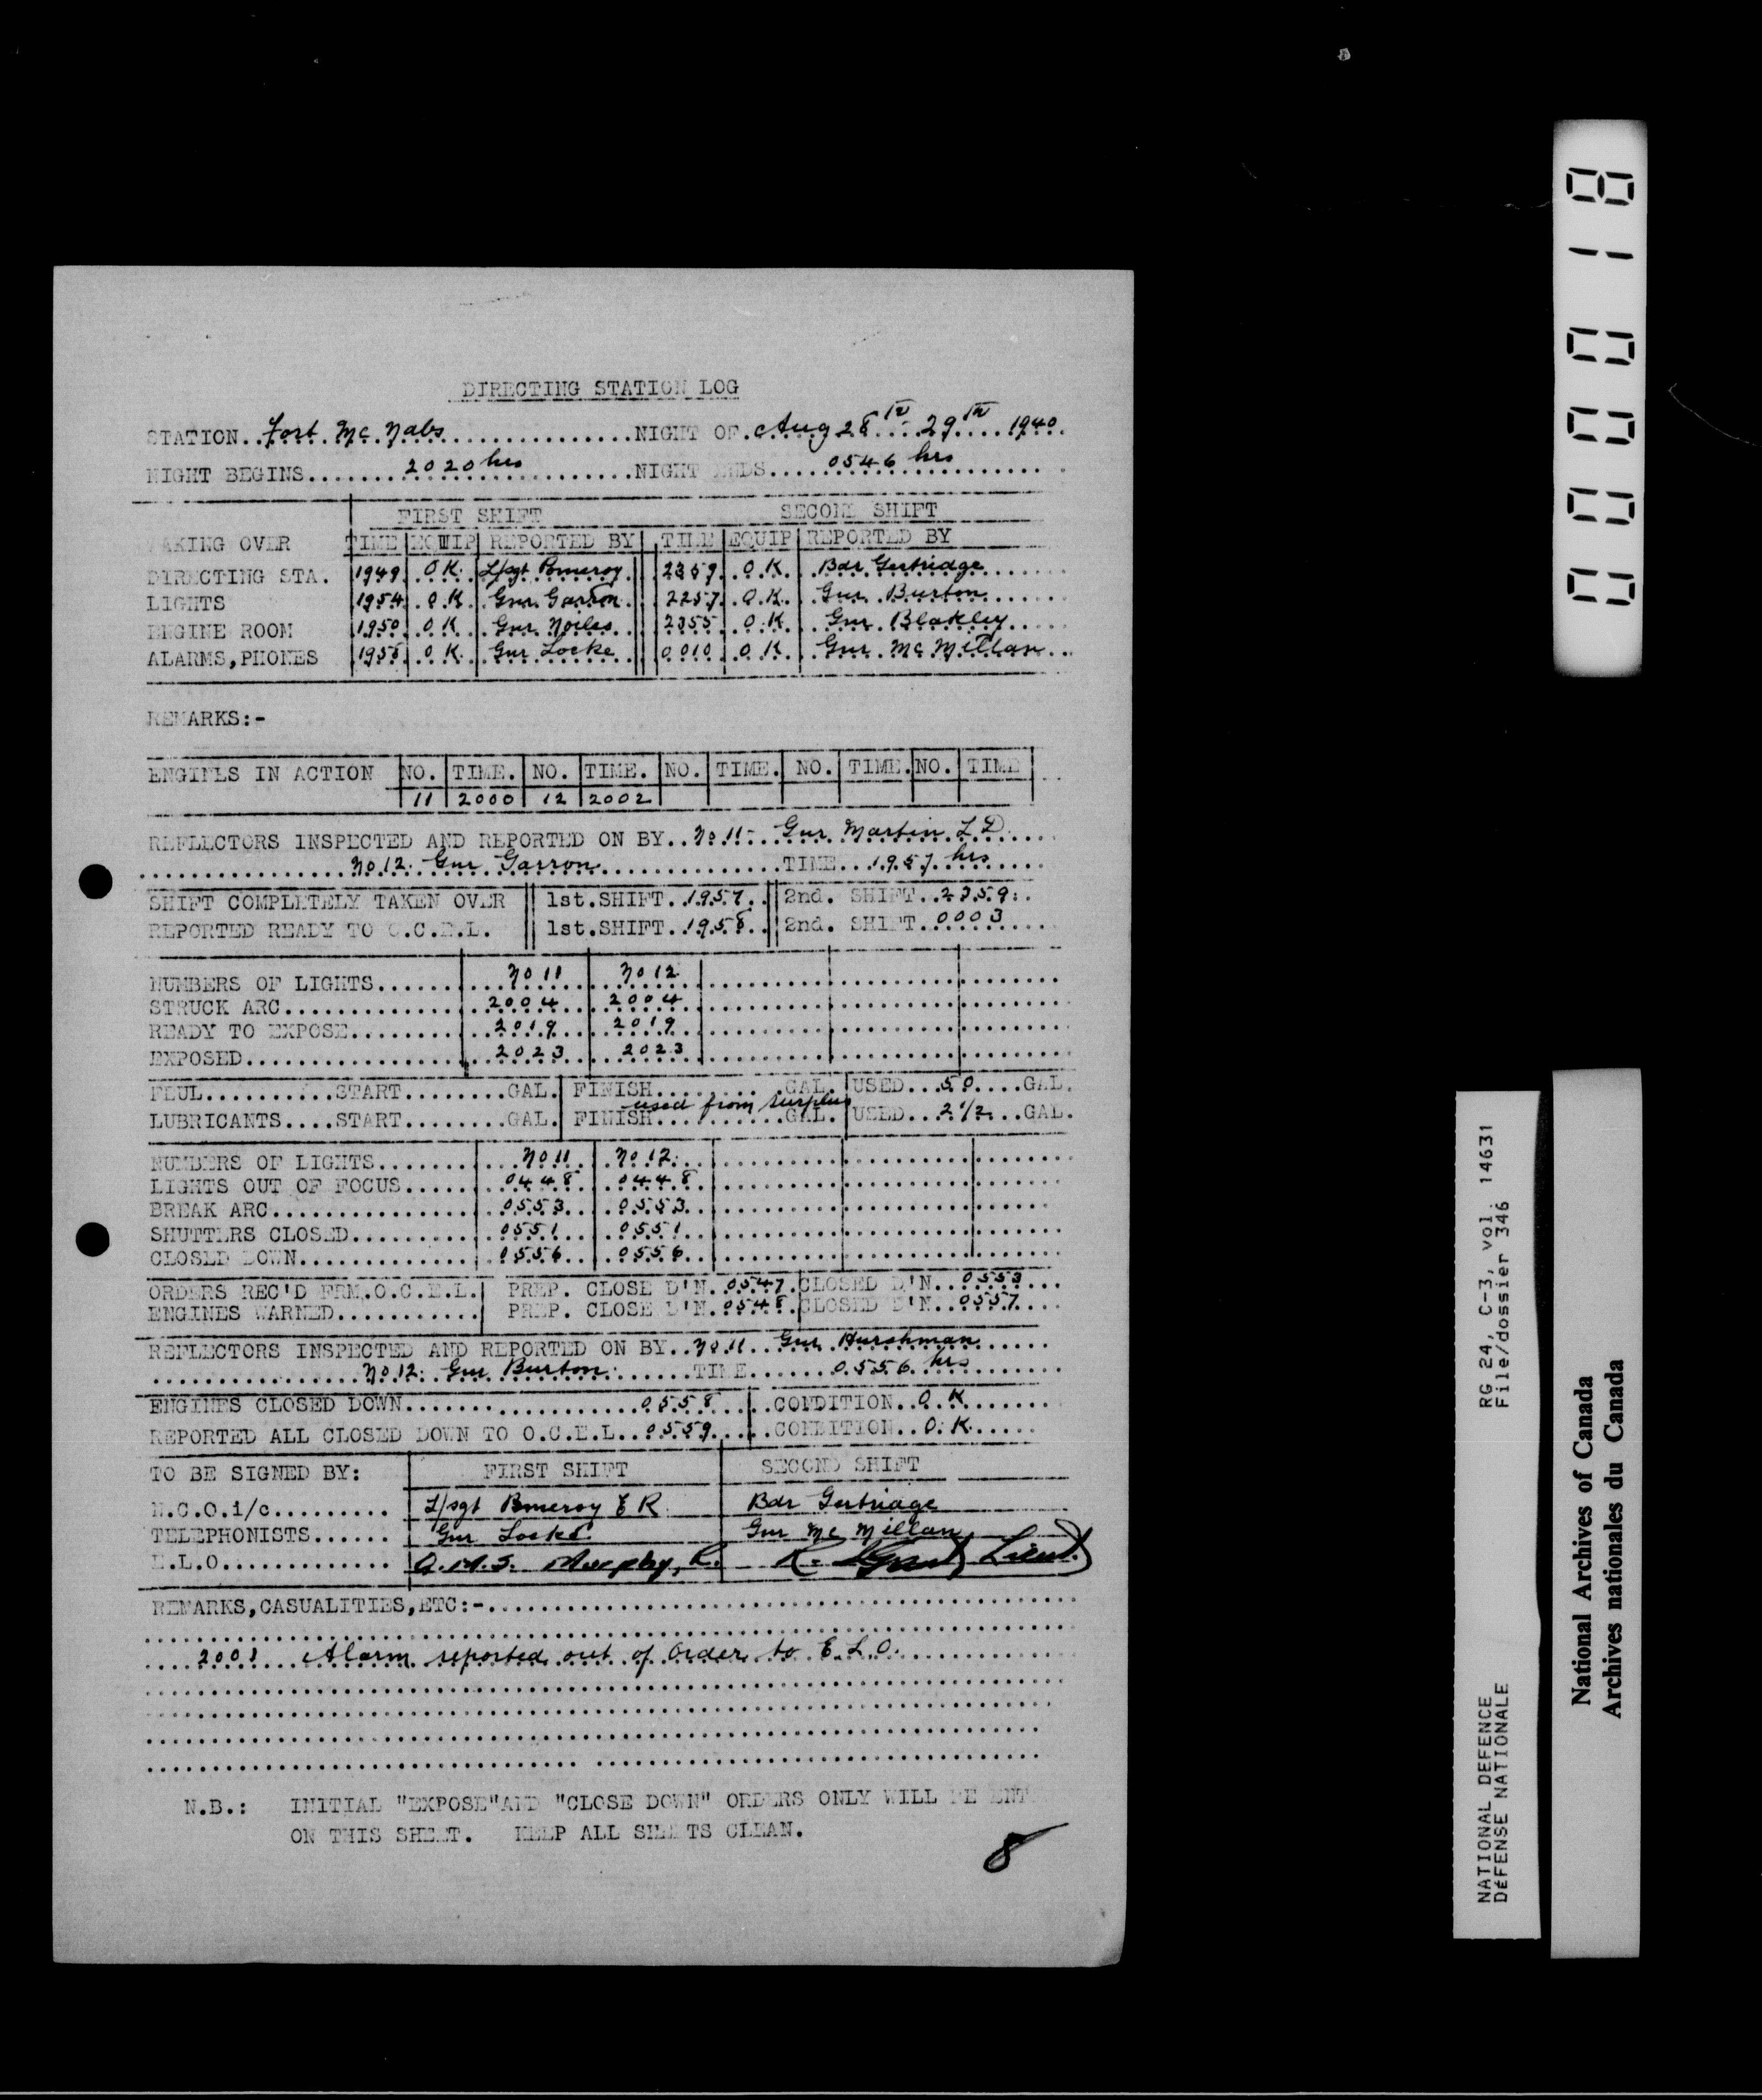 DIRECTING STATION LOG
STATION..Fort Mc Nabs................NIGHT OF.Aug 28th - 29th 1940
NIGHT BEGINS......2020 hrs..........NIGHT ENDS....0546 hrs..........
FIRST SHIFT SECOND SHIFT
TAKING OVER TIME EQUIP REPORTED BY TIME EQUIP REPORTED BY
DIRECTING STA. 1949 O.K. L/sgt Pomeroy 2359 O.K. Bdr Gertridge
LIGHTS 1954 O.K. Gnr. Garron 2257 O.K. Gnr Burton
ENGINE ROOM 1950 O.K. Gnr Noiles 2355 O.K. Gnr. Blakley
ALARMS,PHONES 1955 O.K. Gnr Locke 0010 O.K. Gnr. Mc Millan
REMARKS:-
ENGINES IN ACTION NO. TIME. NO. TIME. NO. TIME. NO. TIME. NO. TIME
11 2000 12 2002
REFLECTORS INSPECTED AND REPORTED ON BY..No 11- Gnr Martin L D.
No 12. Gnr Garron..............TIME...1957 hrs
SHIFT COMPLETELY TAKEN OVER 1st.SHIFT..1957.. 2nd. SHIFT..2359..
REPORTED READY TO O.C.E.L. 1st.SHIFT..1958.. 2nd. SHIFT..0003
NUMBERS OF LIGHTS....... No 11 No 12
STRUCK ARC............... 2004 2004
READY TO EXPOSE.......... 2019 2019
EXPOSED.................. 2023 2023
FEUL..........START........GAL. FINISH..........GAL. USED...50....GAL.
used from surplus
LUBRICANTS....START........GAL. FINISH..........GAL. USED...2 1/2...GAL.
NUMBERS OF LIGHTS....... No 11 No 12
LIGHTS OUT OF FOCUS..... 0448 0448
BREAK ARC............... 0553 0553
SHUTTERS CLOSED......... 0551 0551
CLOSED DOWN............. 0556 0556
ORDERS REC'D FRM.O.C.E.L. PREP. CLOSE D'N..0547.CLOSED D'N..0553...
ENGINES WARNED........... PREP. CLOSE D'N.0548.CLOSED D'N..0557....
REFLECTORS INSPECTED AND REPORTED ON BY..No 11...Gnr Hurshman
No 12. Gnr Burton.......TIME.......0556 hrs
ENGINES CLOSED DOWN....................0558..... CONDITION..O.K
REPORTED ALL CLOSED DOWN TO O.C.E.L..0559..... CONDITION..O.K.
TO BE SIGNED BY: FIRST SHIFT SECOND SHIFT
N.C.O.i/c......... L/sgt Pomeroy E R. Bdr Gertridge
TELEPHONISTS...... Gnr Locke Gnr Mc Millan
E.L.O............. Q.M.S. Murphy, R. R. Grant Lieut.
REMARKS,CASUALITIES,ETC:-
2001 Alarm reported out of order to E.L.O.
N.B.: INITIAL "EXPOSE"AND "CLOSE DOWN" ORDERS ONLY WILL BE ENT
ON THIS SHEET. KEEP ALL SHEETS CLEAN.
8
000018
RG 24, C-3, vol. 14631
File/dossier 346
NATIONAL DEFENCE
DÉFENSE NATIONALE
National Archives of Canada
Archives nationales du Canada